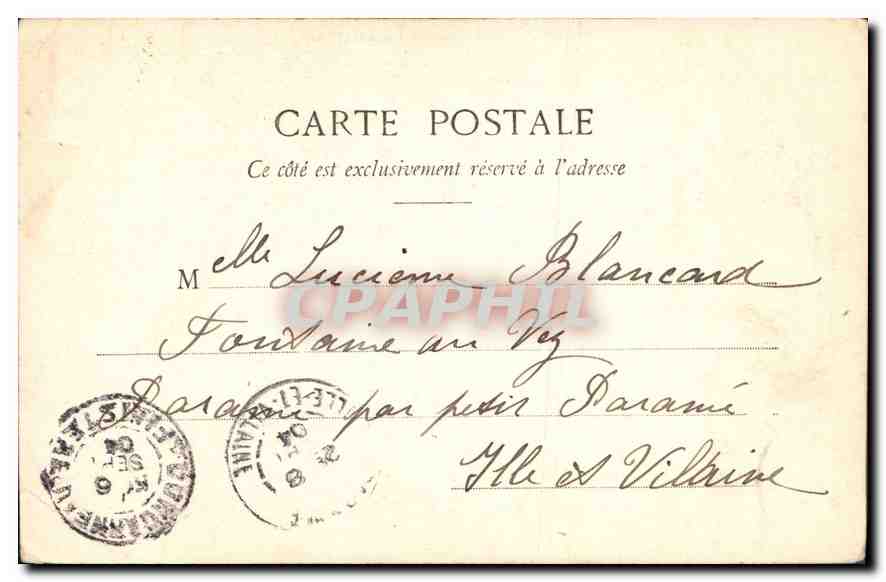 CARTE POSTALE
Ce côté est exclusivement réservé à l'adresse
Melle Lucienne Blancard
CPAPHIL
Fontaine au Vey
Paramé par petit Paramé
Ille et Vilaine
ILLE-ET-VILAINE
8
04
FINISTERE
6
SEPT
04